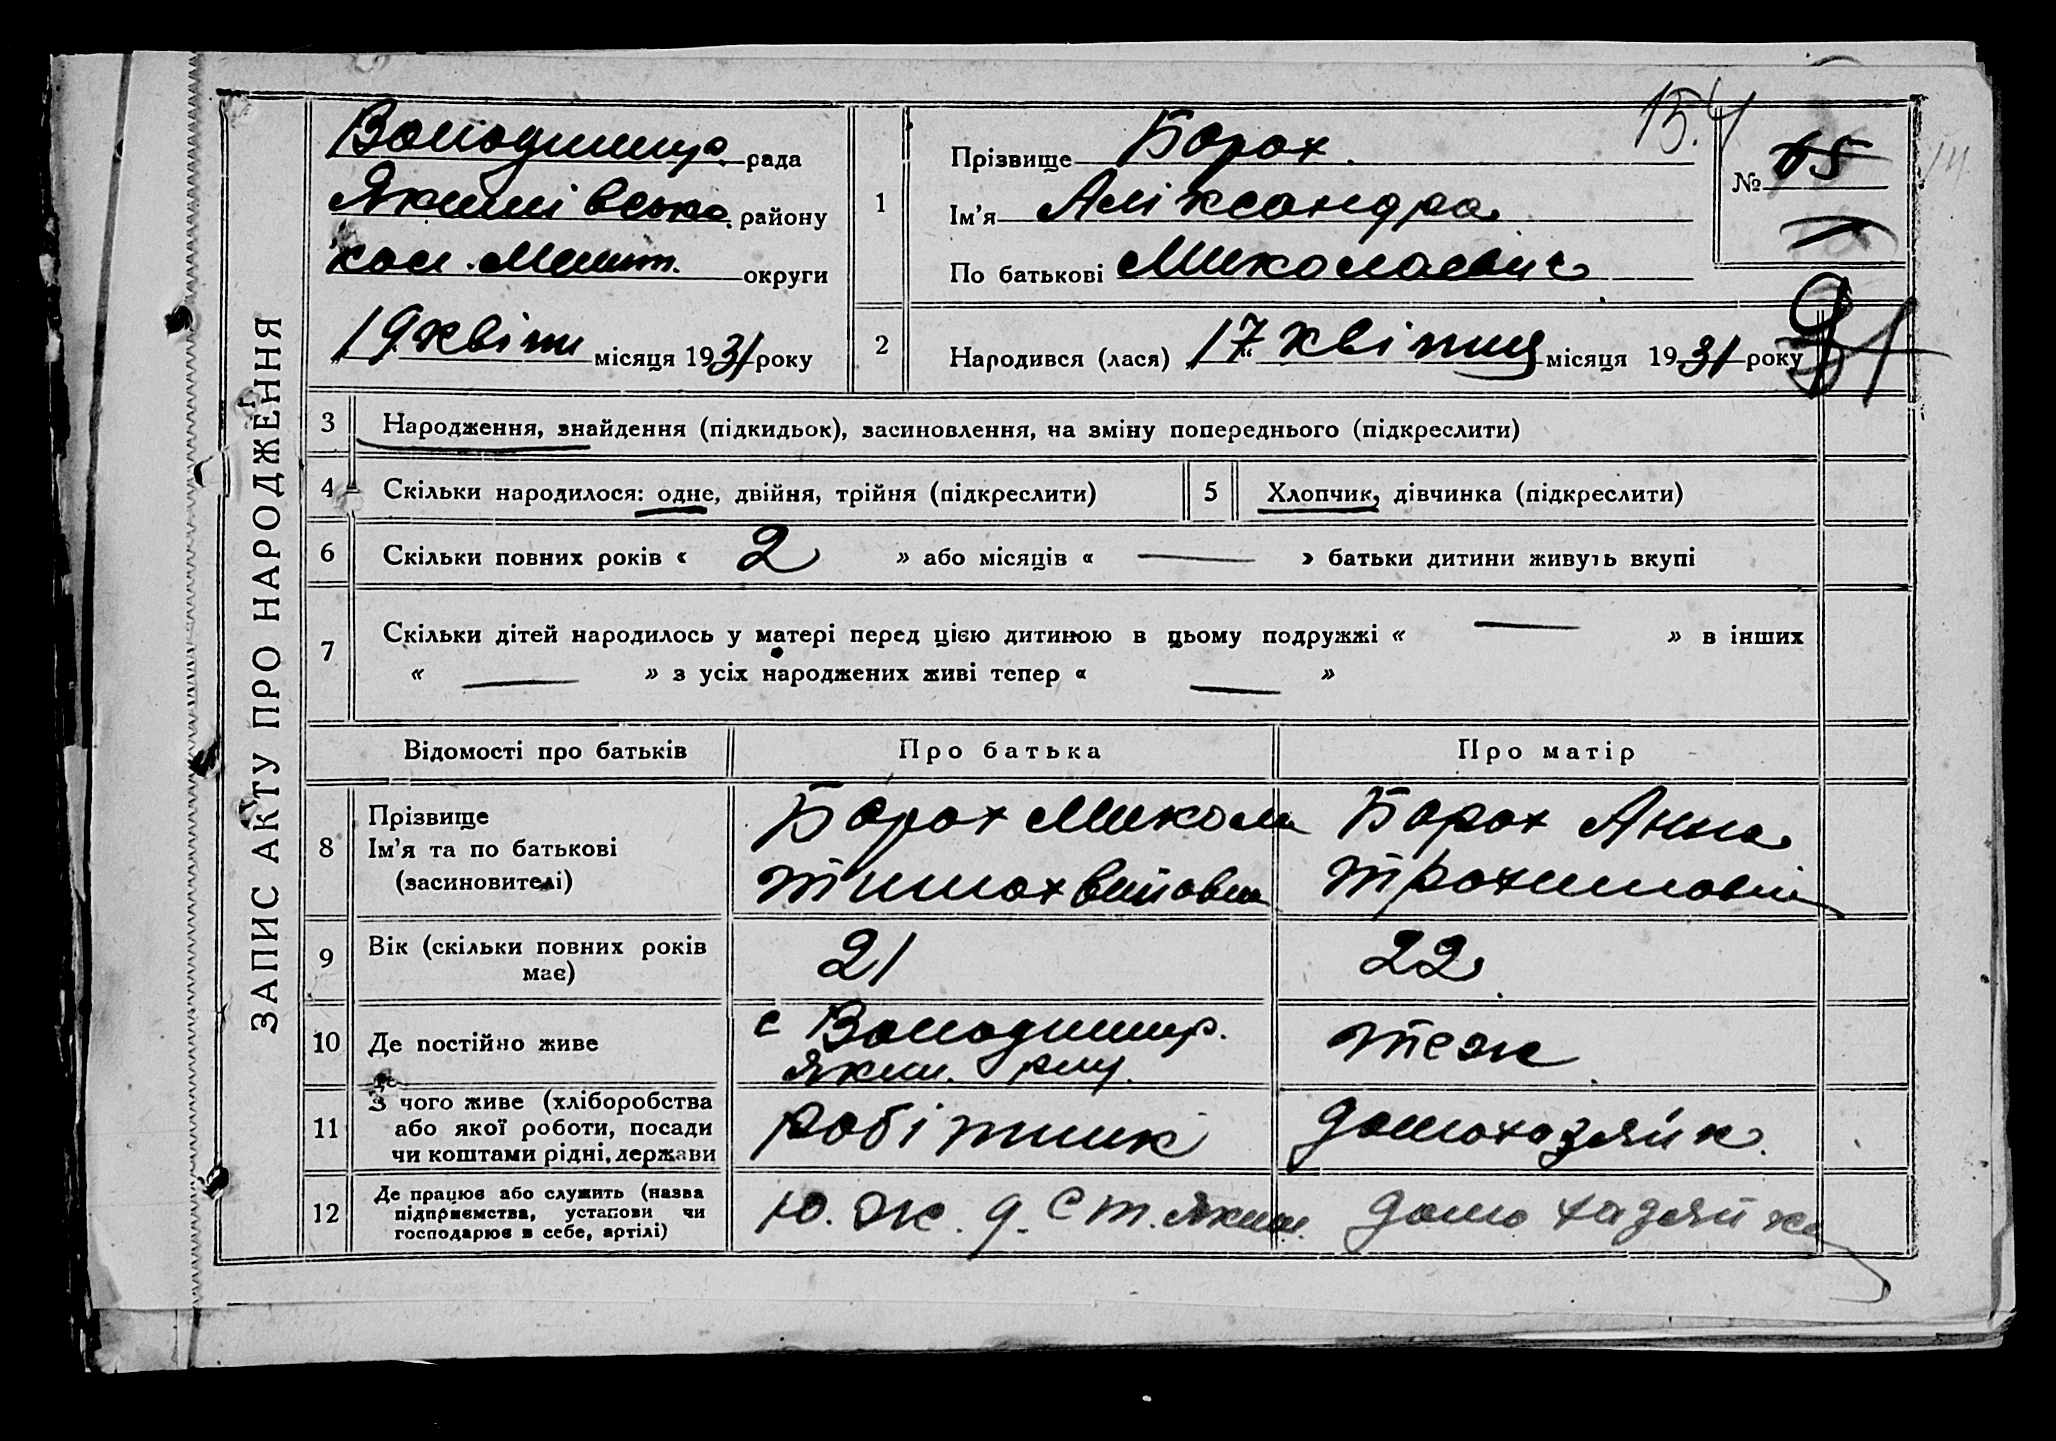 ЗАПИС АКТУ ПРО НАРОДЖЕННЯ
154
Володимир. рада
Якимівсько району
кол. Меліт. округи
19 квітн місяця 1931 року
1
Прізвище Борох.
Ім'я Аліксандра
По батькові Миколаевич
№ 65
91
2
Народився (лася) 17 " квітня місяця 1931 року
3 Народження, знайдення (підкидьок), засиновлення, на зміну попереднього (підкреслити)
4 Скільки народилося: одне, двійня, трійня (підкреслити)
5 Хлопчик, дівчинка (підкреслити)
6 Скільки повних років « 2 » або місяців « — » батьки дитини живуть вкупі
7 Скільки дітей народилось у матері перед цією дитиною в цьому подружжі « — » в інших
« — » з усіх народжених живі тепер « — »
Відомості про батьків Про батька Про матір
8 Прізвище
Ім'я та по батькові
(засиновителі)
Борох Микола
Борох Анна
9 Вік (скільки повних років
має)
21
22
10 Де постійно живе
с Володимир.
Яким. рну.
теж
11 З чого живе (хліборобства
або якої роботи, посади
чи коштами рідні, держави
робітник
домохазяйк.
12 Де працює або служить (назва
підприємства, установи чи
господарює в себе, артілі)
Ю. Ж. Д. Ст. Яким.
домохазяйка